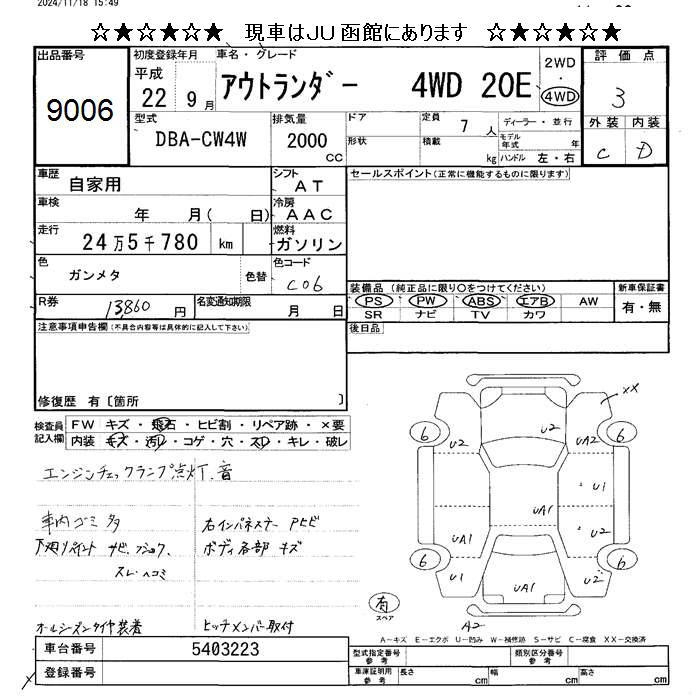 2024/11/18 15:49
☆★☆★☆★ 現車はJU函館にあります ☆★☆★☆★
出品番号
9006
初度登録年月
平成
22 9月
車名・グレード
アウトランダー 4WD 20E
2WD
・
4WD
評価点
3
外装 内装
C D
型式
DBA-CW4W
排気量
2000
cc
ドア
形状
定員
7 人
積載
kg
ディーラー・並行
モデル年式 年
ハンドル 左・右
車歴
自家用
シフト
AT
車検
年 月( 日)
冷房
AAC
走行
24万5千780 km
燃料
ガソリン
色
ガンメタ
色替
色コード
C06
R券
13,860 円
名変通知期限
月 日
セールスポイント(正常に機能するものに限ります)
装備品 (純正品に限り○をつけてください)
PS PW ABS エアB AW
SR ナビ TV カワ
新車保証書
有・無
後日品
注意事項申告欄(不具合内容等は具体的に記入して下さい)
修復歴 有〔箇所 〕
検査員記入欄
FW キズ・飛石・ヒビ割・リペア跡・×要
内装 キズ・汚レ・コゲ・穴・スレ・キレ・破レ
エンジンチェックランプ点灯、音
車内ゴミ多
右インパネステー アヒビ
下廻りペイント サビ、
スレ・ヘコミ
ボディ各部キズ
オールシーズンタイヤ装着
ヒッチメンバー取付
XX
6 U2 U2 6
U1
UA1
UA1 U2
6 6
U1 UA1 U2
有
スペア
A2
A-キズ E-エクボ U-凹み W-補修跡 S-サビ C-腐食 XX-交換済
車台番号
5403223
登録番号
型式指定番号
参考
類別区分番号
参考
車庫証明用
参考
長さ cm
幅 cm
高さ cm